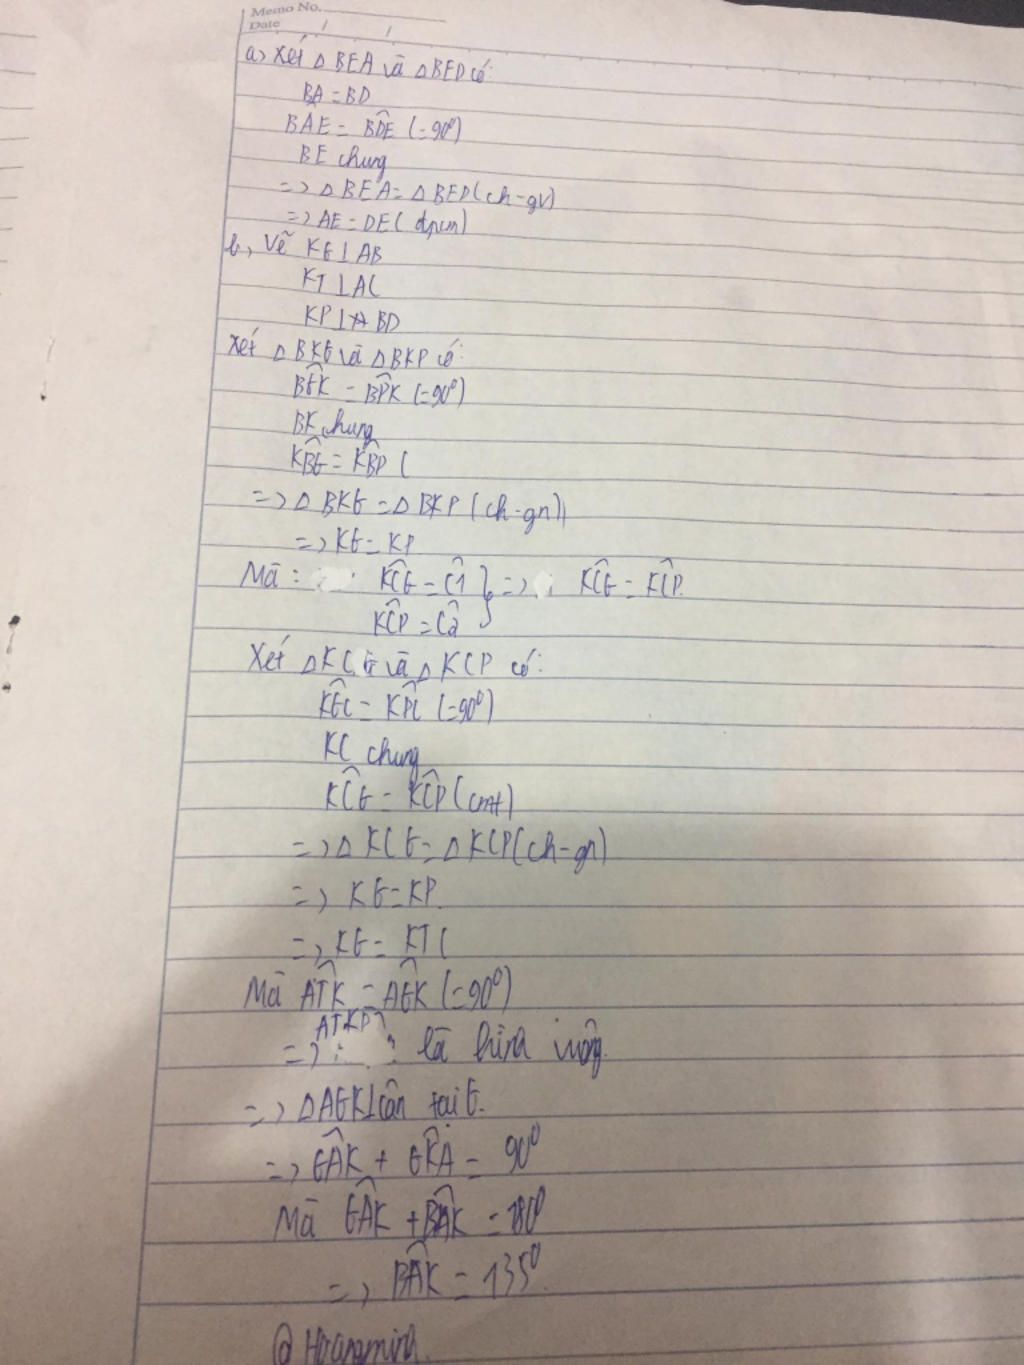 Memo No.
Date / /
a, Xét △ BEA và △BED có:
BA = BD
BÂE = BD̂E (=90⁰)
BE chung
=> △ BEA = △BED (ch-gv)
=> AE = DE (đpcm)
b, Vẽ KG⊥AB
KT⊥AC
KP⊥ BD
Xét △BKG và △BKP có:
BĜK = BP̂K (=90⁰)
BK chung
KB̂G = KB̂P (
=> △ BKG = △ BKP (ch-gn)
=> KG = KP
Mà : KĈG = Ĉ1 } => KĈG = KĈP.
KĈP = Ĉ2
Xét △KCG và △ KCP có:
KĜC = KP̂C (=90⁰)
KC chung
KĈG = KĈP (cmt)
=> △ KCG = △ KCP (ch-gn)
=> KG = KP.
=> KG = KT (
Mà AT̂K = AĜK (=90⁰)
ATKP
=> là hình vuông.
=> △AGK⊥cân tại G.
=> GÂK + GK̂A = 90⁰
Mà GÂK + BÂK = 180⁰
=> BÂK = 135⁰.
@ Hoangminh.